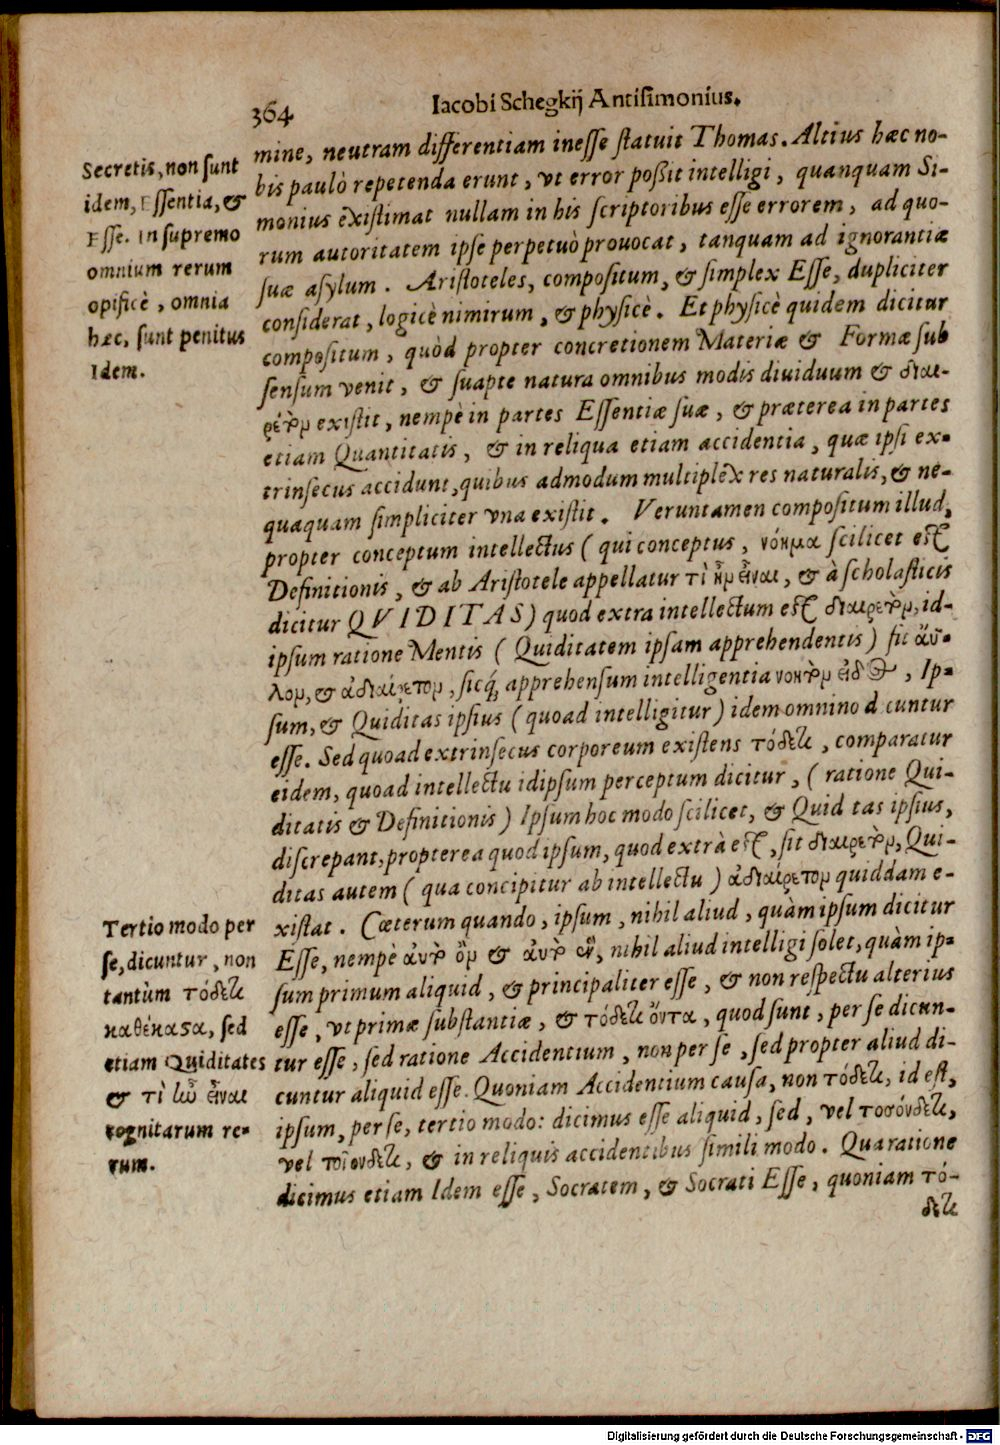 364
Iacobi Schegkij Antisimonius.
mine, neutram differentiam inesse statuit Thomas. Altius hæc no-
bis paulò repetenda erunt, vt error poßit intelligi, quanquam Si-
monius existimat nullam in his scriptoribus esse errorem, ad quo-
rum autoritatem ipse perpetuò prouocat, tanquam ad ignorantiæ
suæ asylum. Aristoteles, compositum, & simplex Esse, dupliciter
considerat, logicè nimirum, & physicè. Et physicè quidem dicitur
compositum, quòd propter concretionem Materiæ & Formæ sub
sensum venit, & suapte natura omnibus modis diuiduum & διαι-
ρέτὸν existit, nempè in partes Essentiæ suæ, & præterea in partes
etiam Quantitatis, & in reliqua etiam accidentia, quæ ipsi ex-
trinsecus accidunt, quibus admodum multiplex res naturalis, & ne-
quaquam simpliciter vna existit. Veruntamen compositum illud,
propter conceptum intellectus (qui conceptus, νόημα scilicet est
Definitionis, & ab Aristotele appellatur τὶ ἦν εἶναι, & à scholasticis
dicitur QVIDITAS) quod extra intellectum est διαιρετὸν, id-
ipsum ratione Mentis (Quiditatem ipsam apprehendentis) fit ἄϋ-
λον, & ἀδιαίρετον, sicq́, apprehensum intelligentia νοητὸν εἶδος, Ip-
sum, & Quiditas ipsius (quoad intelligitur) idem omnino d cuntur
esse. Sed quoad extrinsecus corporeum existens τόδετι, comparatur
eidem, quoad intellectu idipsum perceptum dicitur, (ratione Qui-
ditatis & Definitionis) Ipsum hoc modo scilicet, & Quid tas ipsius,
discrepant, propterea quod ipsum, quod extrà est, sit διαιρετὸν, Qui-
ditas autem (qua concipitur ab intellectu) ἀδιαίρετον quiddam e-
xistat. Cæterum quando, ipsum, nihil aliud, quàm ipsum dicitur
Esse, nempè αὐτὸ ὂν & αὐτὸ ἓν, nihil aliud intelligi solet, quàm ip-
sum primum aliquid, & principaliter esse, & non respectu alterius
esse, vt primæ substantiæ, & τόδετι ὄντα, quod sunt, per se dicun-
tur esse, sed ratione Accidentium, non per se, sed propter aliud di-
cuntur aliquid esse. Quoniam Accidentium causa, non τόδετι, id est,
ipsum, per se, tertio modo: dicimus esse aliquid, sed, vel τοσόνδετι,
vel τοῖονδετι, & in reliquis accidentibus simili modo. Qua ratione
dicimus etiam Idem esse, Socratem, & Socrati Esse, quoniam τό-
δετι
Secretis, non sunt
idem, Essentia, &
Esse. In supremo
omnium rerum
opificè, omnia
hæc, sunt penitus
Idem.
Tertio modo per
se, dicuntur, non
tantùm τόδετι
καθέκαστα, sed
etiam Quiditates
& τὶ ἦν εἶναι
cognitarum re-
rum.
Digitalisierung gefördert durch die Deutsche Forschungsgemeinschaft - DFG